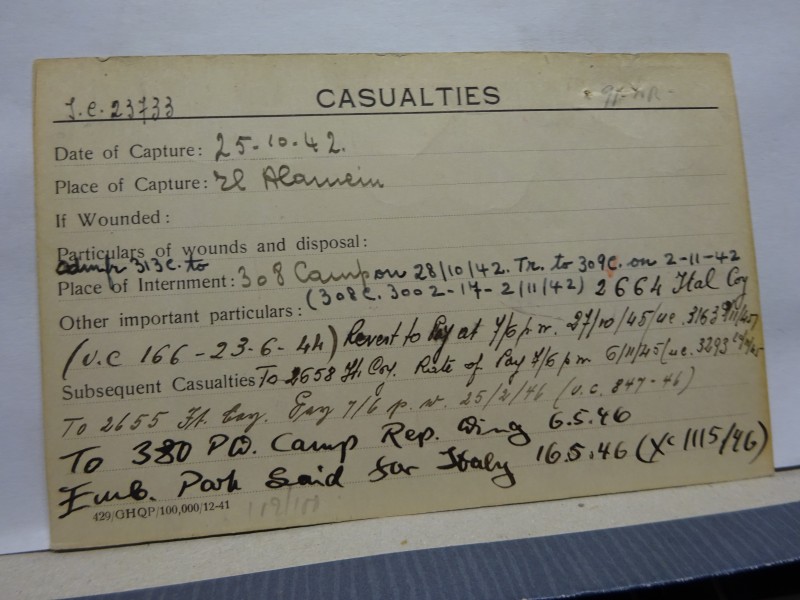 I.C. 23733 CASUALTIES
Date of Capture: 25-10-42.
Place of Capture: El Alamein
If Wounded:
Particulars of wounds and disposal:
313C. to
Place of Internment: 308 Camp on 28/10/42. Tr. to 309C. on 2-11-42
Other important particulars: (308C. 3002-17-2/11/42) 2664 Ital Coy
(U.C 166-23-6-44) Revert to Pay at 7/6 p.w. 27/10/45 (uc. 3163
Subsequent Casualties To 2658 It. Coy. Rate of Pay 7/6 p.w 6/11/45 (uc. 3293
To 2655 It. Coy. Pay 7/6 p.w. 25/2/46 (U.C. 847-46)
To 380 P.W. Camp Rep. Wing 6.5.46
Emb. Port Said for Italy 16.5.46 (Xc 1115/46)
429/GHQP/100,000/12-41